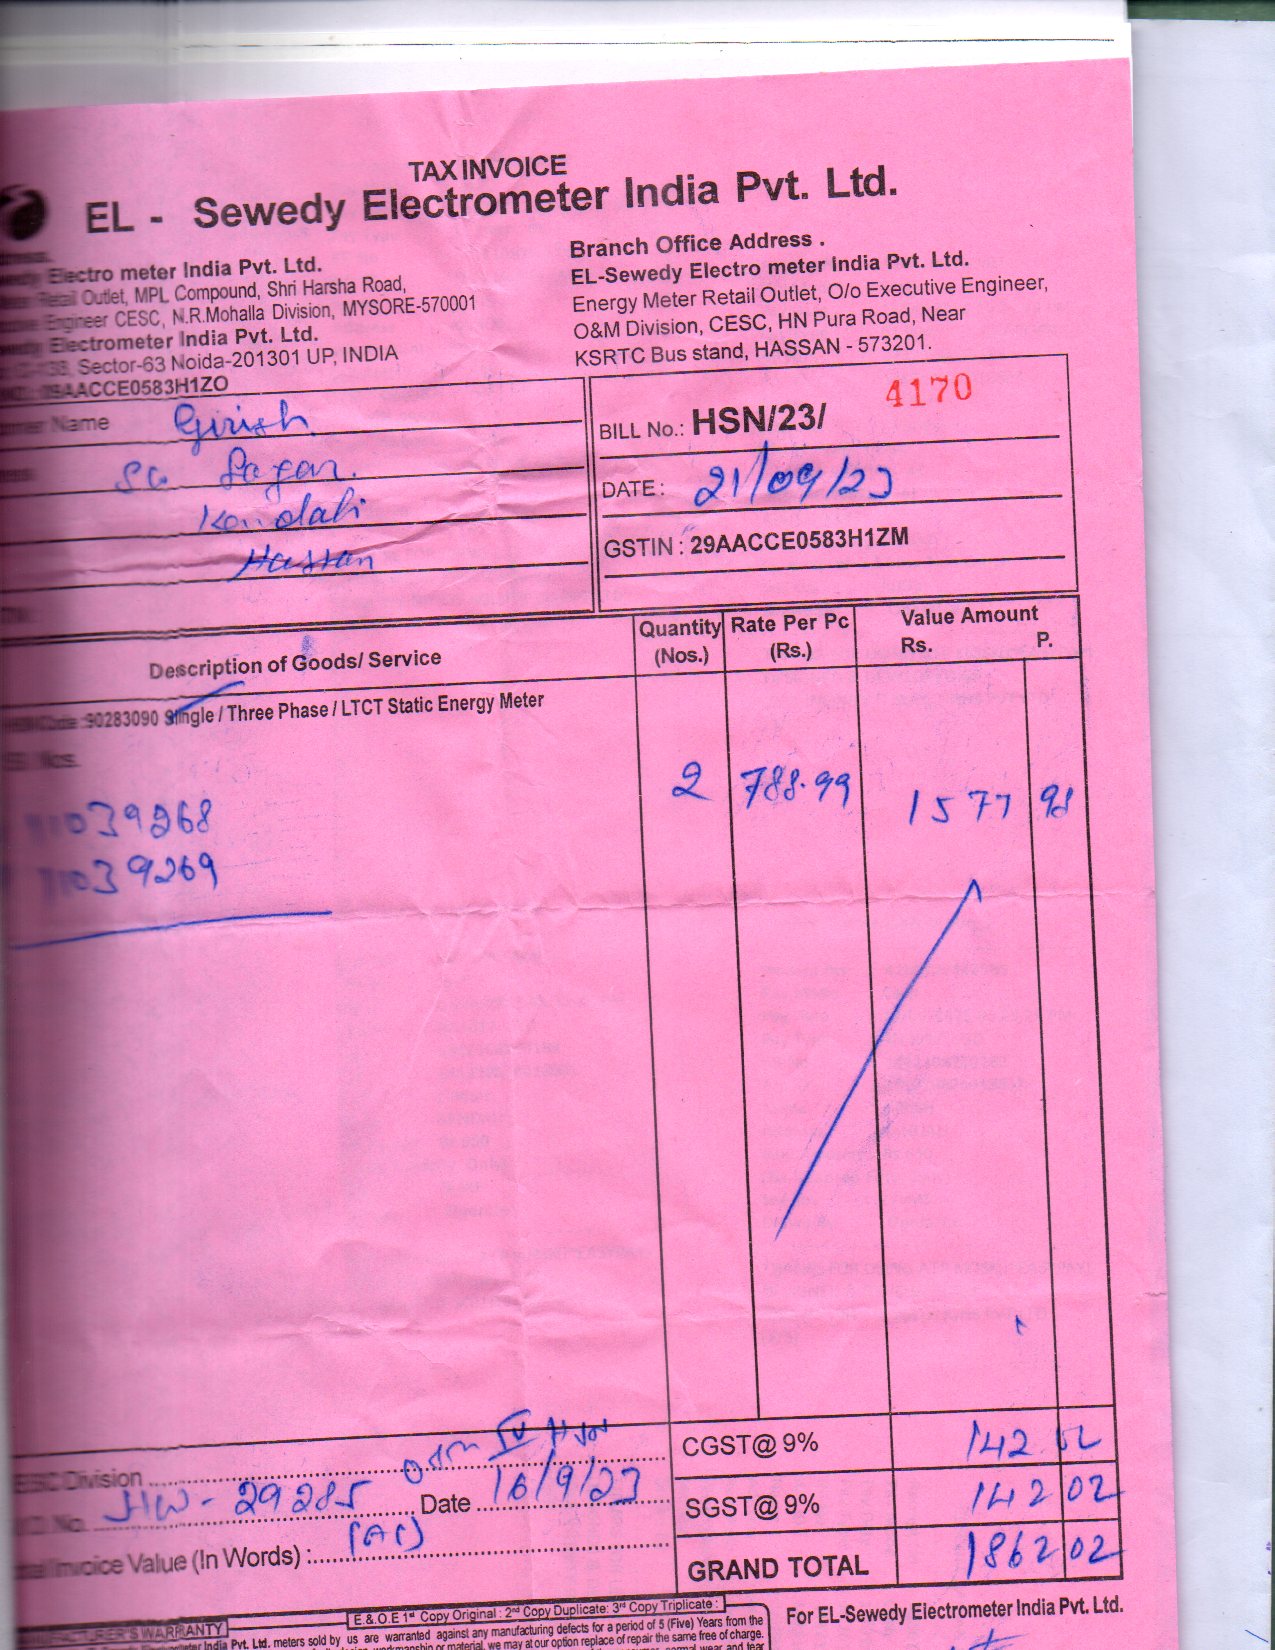 TAX INVOICE
EL - Sewedy Electrometer India Pvt. Ltd.
Electro meter India Pvt. Ltd.
Retail Outlet, MPL Compound, Shri Harsha Road,
Engineer CESC, N.R.Mohalla Division, MYSORE-570001
Electrometer India Pvt. Ltd.
Sector-63 Noida-201301 UP, INDIA
29AACCE0583H1ZO
Branch Office Address .
EL-Sewedy Electro meter India Pvt. Ltd.
Energy Meter Retail Outlet, O/o Executive Engineer,
O&M Division, CESC, HN Pura Road, Near
KSRTC Bus stand, HASSAN - 573201.
Name Girish
Sagar.
Kandali
Hassan
BILL No.: HSN/23/ 4170
DATE : 21/09/23
GSTIN : 29AACCE0583H1ZM
Description of Goods/ Service Quantity (Nos.) Rate Per Pc (Rs.) Value Amount Rs. P.
Code :90283090 Single / Three Phase / LTCT Static Energy Meter
Nos.
2 788.99 1577 98
11039268
11039269
CGST@ 9% 142 02
SGST@ 9% 142 02
GRAND TOTAL 1862 02
Division IV HSN
No. HW - 29285 Date 16/9/23
Invoice Value (In Words) :
E & O.E 1st Copy Original : 2nd Copy Duplicate: 3rd Copy Triplicate :
For EL-Sewedy Electrometer India Pvt. Ltd.
WARRANTY
India Pvt. Ltd. meters sold by us are warranted against any manufacturing defects for a period of 5 (Five) Years from the
or material, we may at our option replace of repair the same free of charge.